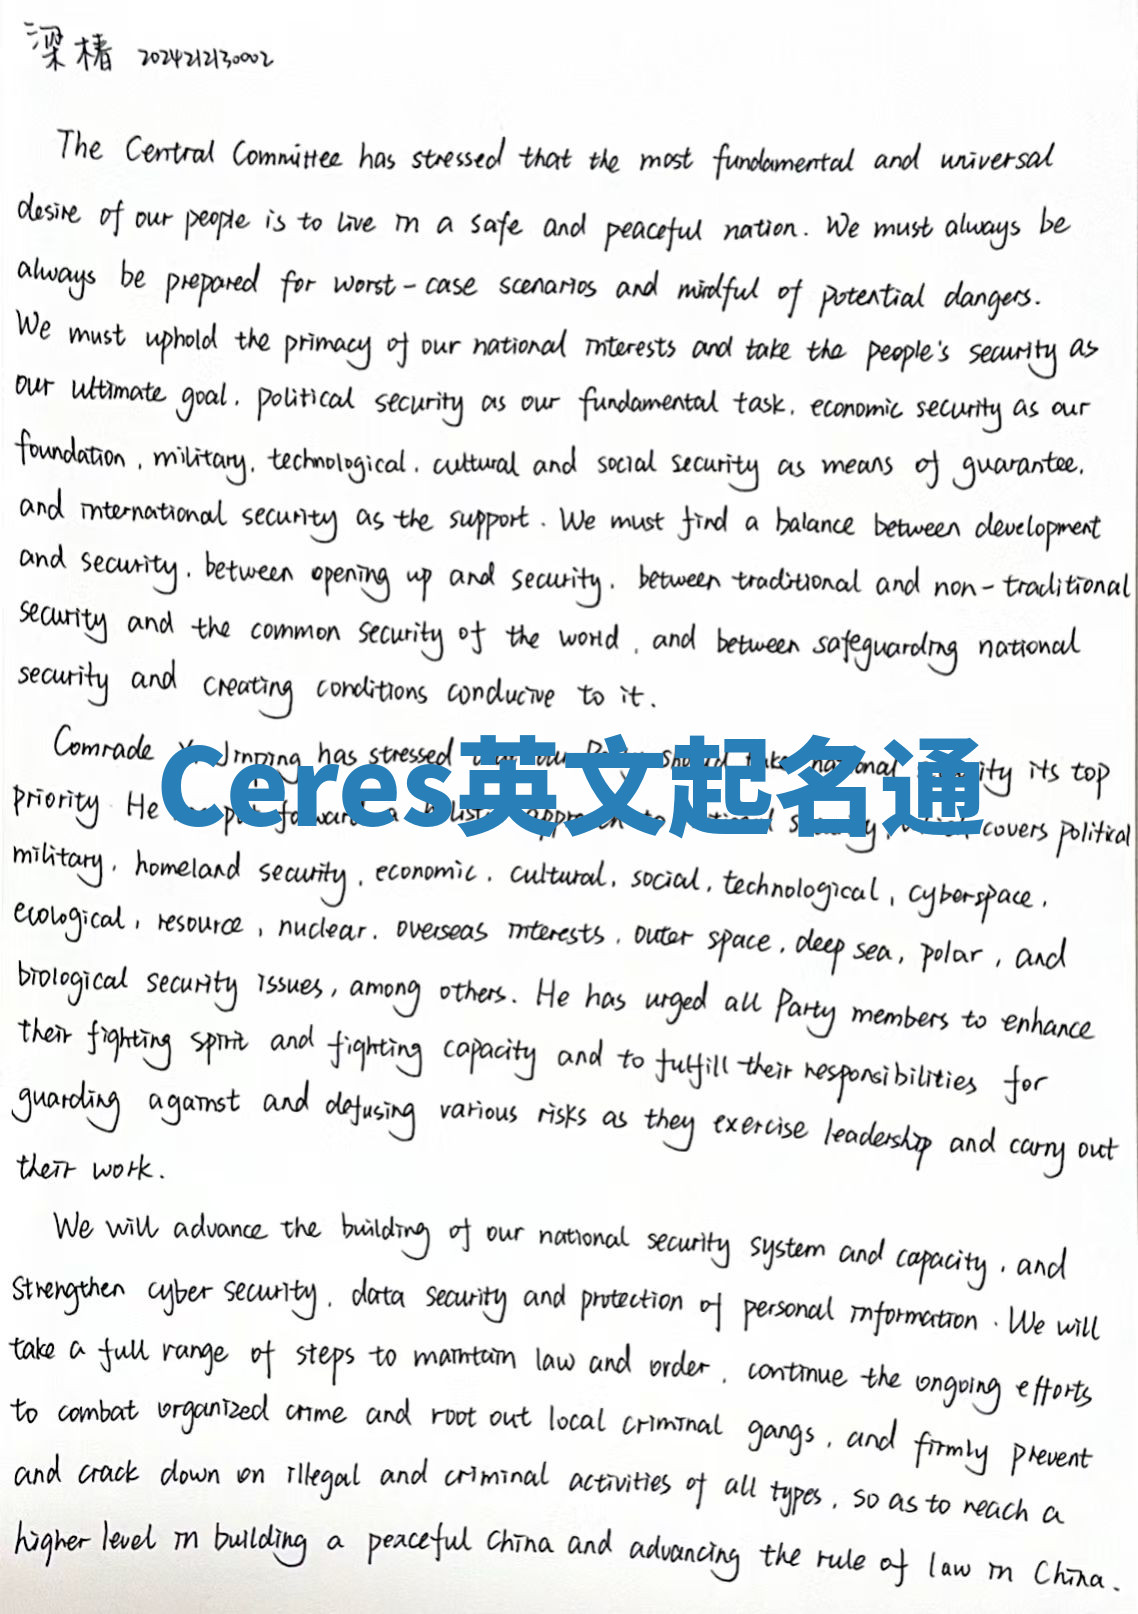 梁椿 2024212130002
The Central Committee has stressed that the most fundamental and universal
desire of our people is to live in a safe and peaceful nation. We must always be
always be prepared for worst-case scenarios and mindful of potential dangers.
We must uphold the primacy of our national interests and take the people's security as
our ultimate goal, political security as our fundamental task, economic security as our
foundation, military, technological, cultural and social security as means of guarantee,
and international security as the support. We must find a balance between development
and security, between opening up and security, between traditional and non-traditional
security and the common security of the world, and between safeguarding national
security and creating conditions conducive to it.
Comrade Jinping has stressed its top
Ceres英文起名通
priority. He covers political
military, homeland security, economic, cultural, social, technological, cyberspace,
ecological, resource, nuclear, overseas interests, outer space, deep sea, polar, and
biological security issues, among others. He has urged all Party members to enhance
their fighting spirit and fighting capacity and to fulfill their responsibilities for
guarding against and defusing various risks as they exercise leadership and carry out
their work.
We will advance the building of our national security system and capacity, and
strengthen cyber security, data security and protection of personal information. We will
take a full range of steps to maintain law and order, continue the ongoing efforts
to combat organized crime and root out local criminal gangs, and firmly prevent
and crack down on illegal and criminal activities of all types, so as to reach a
higher level in building a peaceful China and advancing the rule of law in China.